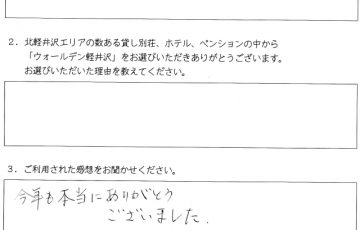 ２．北軽井沢エリアの数ある貸し別荘、ホテル、ペンションの中から
「ウォールデン軽井沢」をお選びいただきありがとうございます。
お選びいただいた理由を教えてください。
３．ご利用された感想をお聞かせください。
今年も本当にありがとう
ございました.